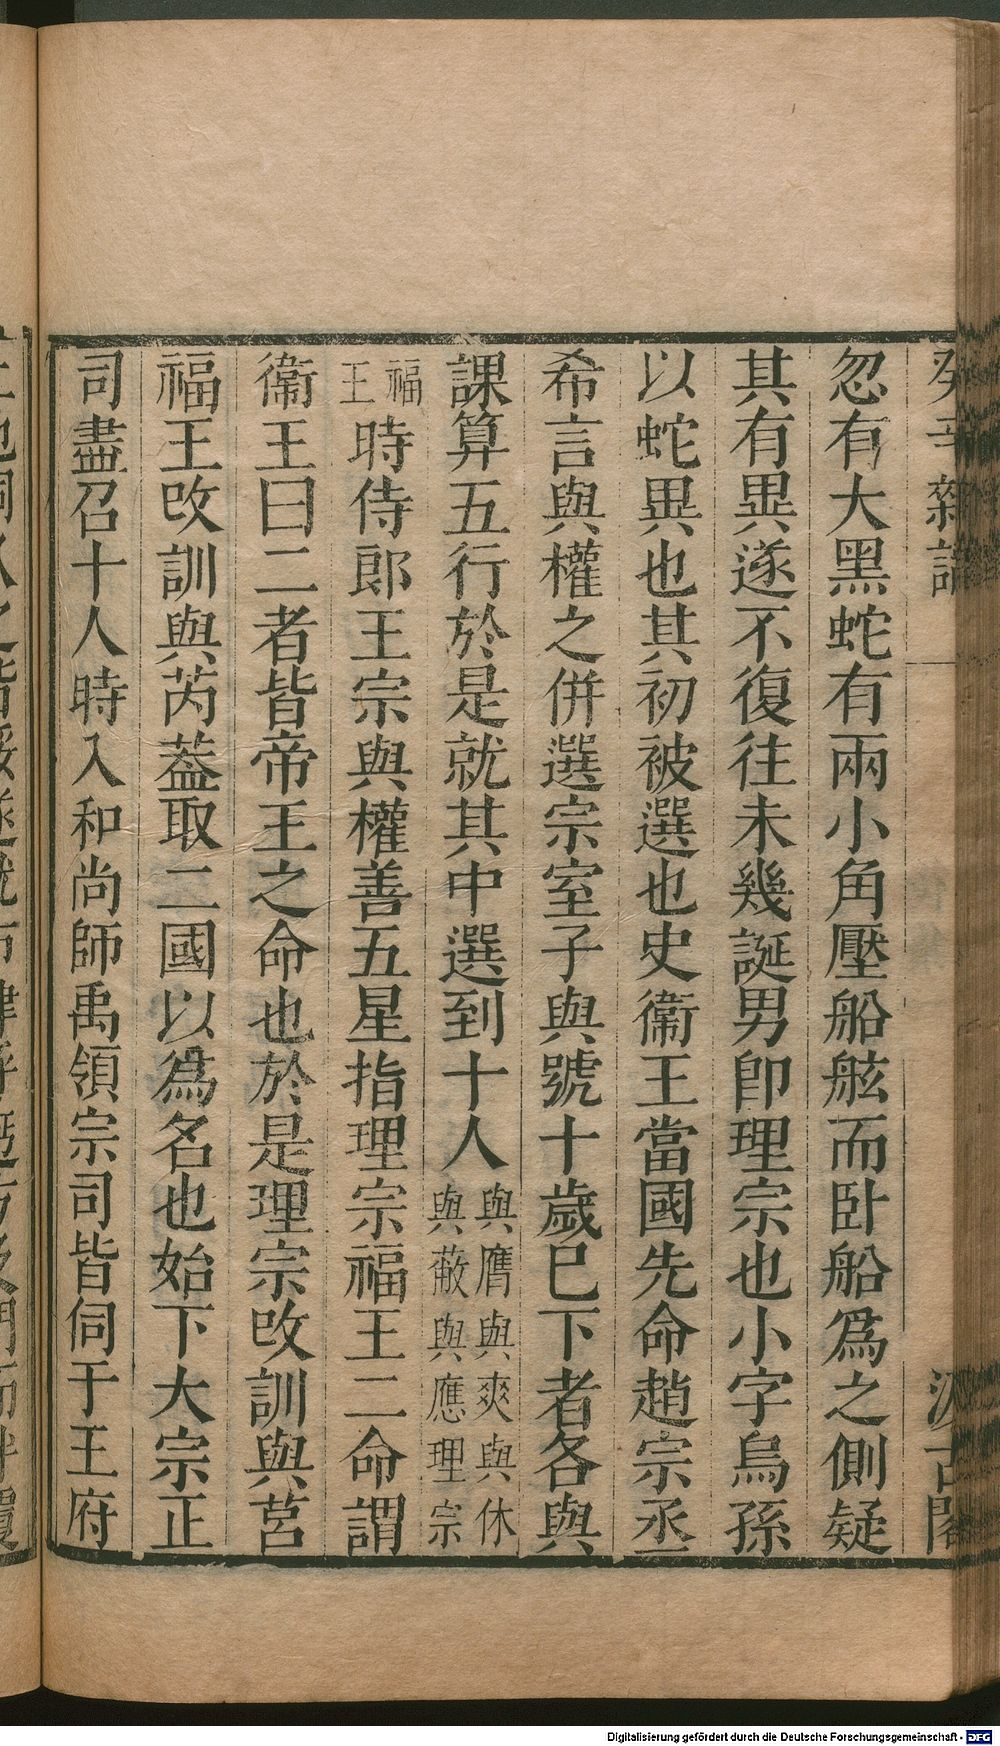 癸辛雜識
汲古閣
忽有大黑蛇有兩小角壓船舷而卧船爲之側疑
其有異遂不復往未幾誕男卽理宗也小字烏孫
以蛇異也其初被選也史衞王當國先命趙宗丞
希言與權之併選宗室子與號十歲巳下者各與
課算五行於是就其中選到十人與膺與爽與休
與蔽與應理宗
福
王時侍郎王宗與權善五星指理宗福王二命謂
衞王曰二者皆帝王之命也於是理宗改訓與莒
福王改訓與芮葢取二國以爲名也始下大宗正
司盡召十人時入和尚師禹領宗司皆伺于王府
Digitalisierung gefördert durch die Deutsche Forschungsgemeinschaft - DFG